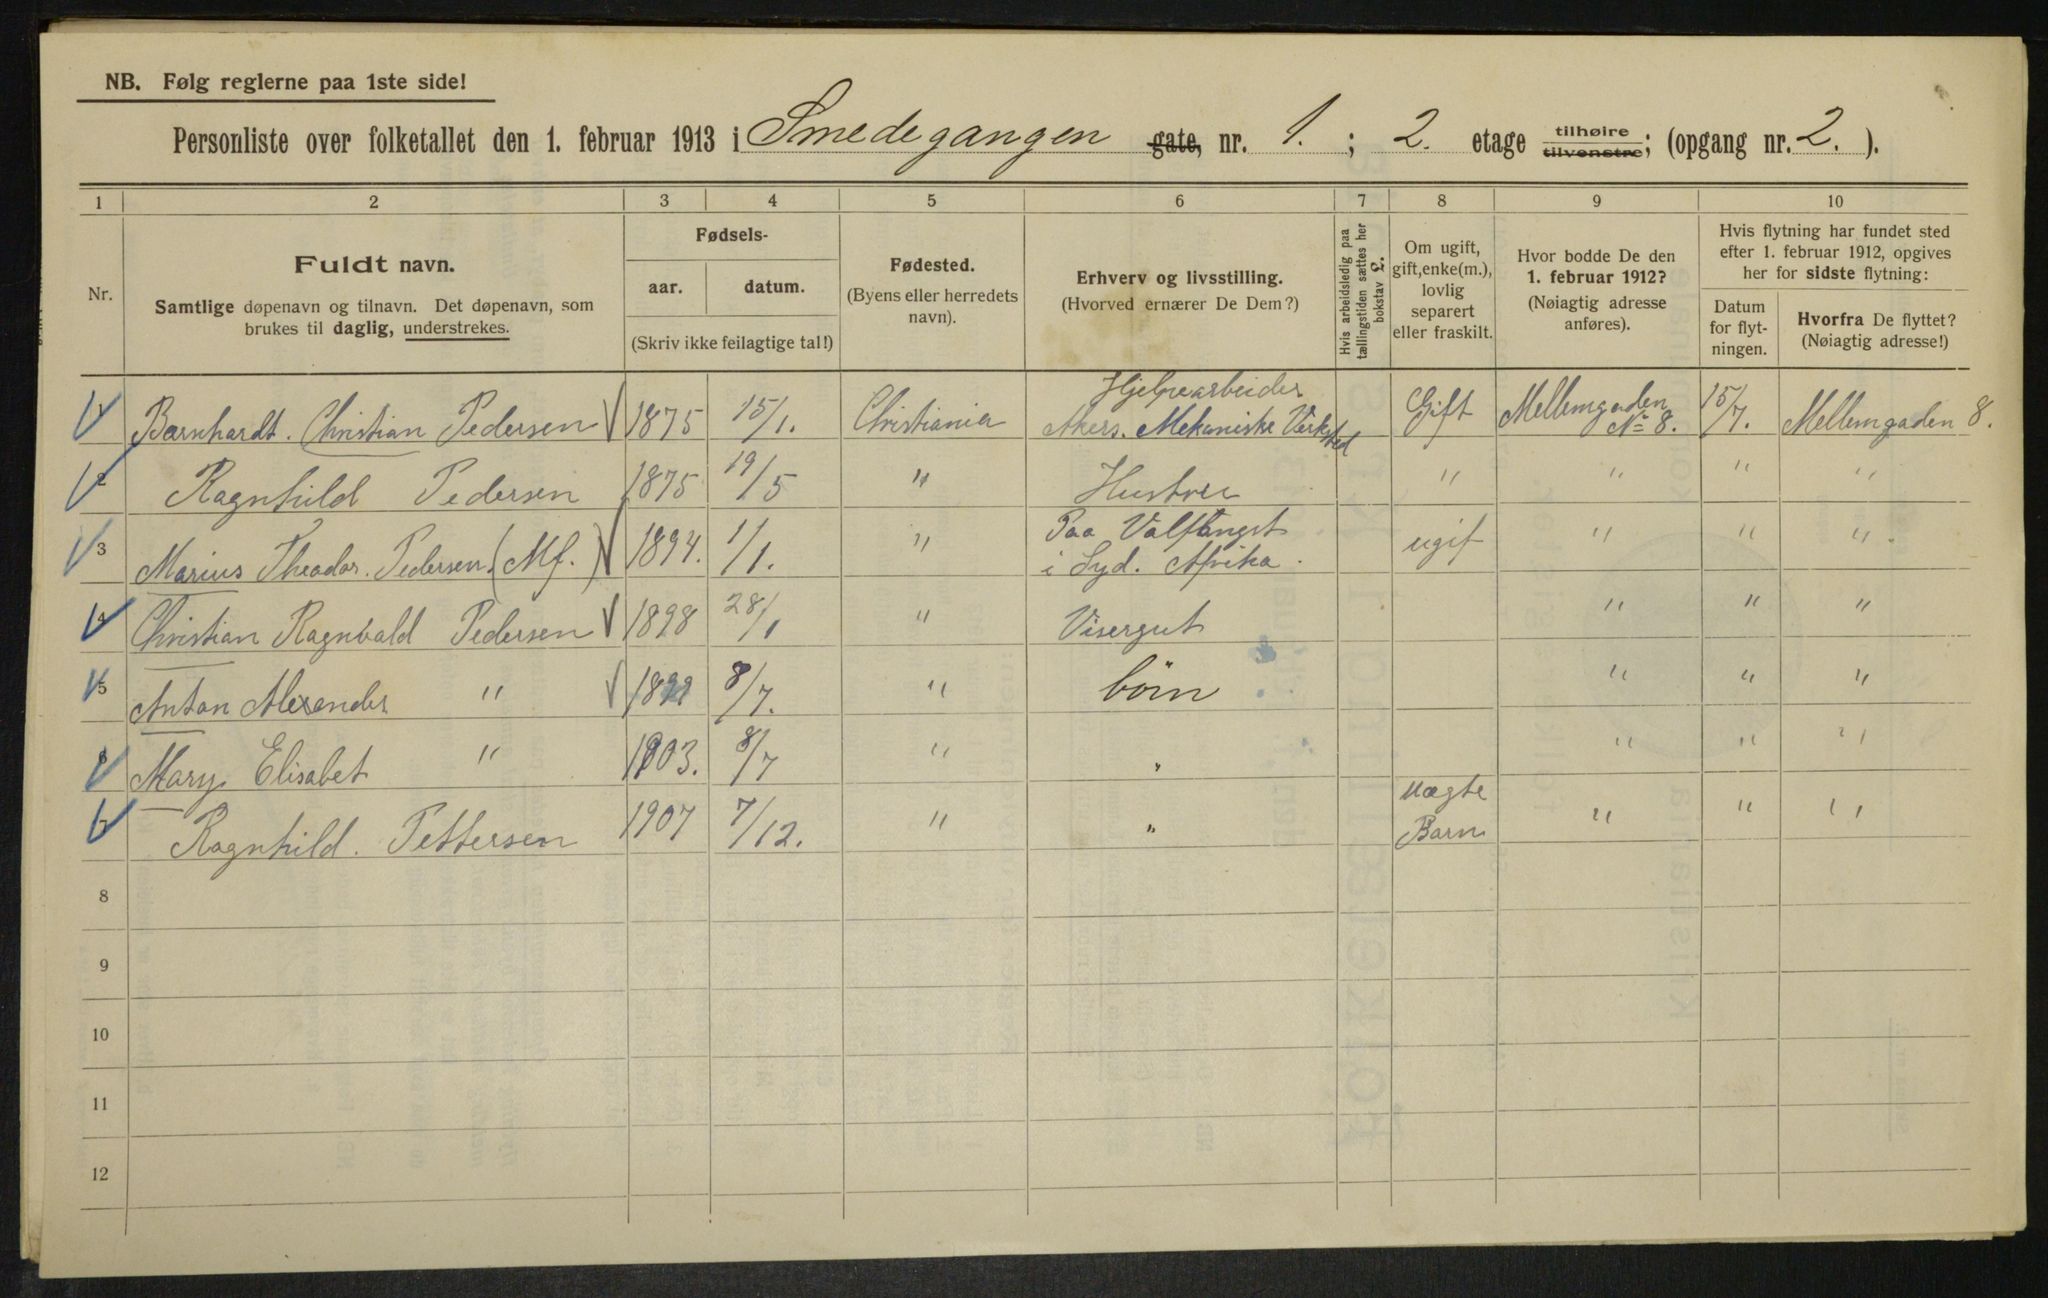 NB. Følg reglerne paa 1ste side!
Personliste over folketallet den 1. februar 1913 i Smedegangen gate, nr. 1. ; 2. etage tilhøire tilvenstre; (opgang nr. 2. ).
1 2 3 4 5 6 7 8 9 10
Nr.
Fuldt navn.
Samtlige døpenavn og tilnavn. Det døpenavn, som
brukes til daglig, understrekes.
Fødsels-
aar. datum.
(Skriv ikke feilagtige tal!)
Fødested.
(Byens eller herredets
navn).
Erhverv og livsstilling.
(Hvorved ernærer De Dem?)
Hvis arbeidsledig paa
tællingstiden sættes her
bokstav L.
Om ugift,
gift, enke(m.),
lovlig
separert
eller fraskilt.
Hvor bodde De den
1. februar 1912?
(Nøiagtig adresse
anføres).
Hvis flytning har fundet sted
efter 1. februar 1912, opgives
her for sidste flytning:
Datum
for flyt-
ningen.
Hvorfra De flyttet?
(Nøiagtig adresse!)
1 Barnhardt. Christian Pedersen 1875 15/1. Christiania Hjelpearbeider Akers. Mekaniske Verksted Gift Mellemgaden No 8. 15/7. Mellemgaden 8.
2 Ragnhild Pedersen 1875 19/5 " Hustru " " " "
3 Marius Theodor. Pedersen. (Mf.) 1894. 1/1. " Paa Valfangst i Syd. Afrika. ugif " " "
4 Christian Ragnvald Pedersen 1898 28/1 " Visergut " " "
5 Anton Alexander " 1899 8/7. " börn " " "
6 Mary Elisabet " 1903. 8/7 " " " " "
7 Ragnhild. Pettersen 1907 7/12. " " Uægte Barn " " "
8
9
10
11
12